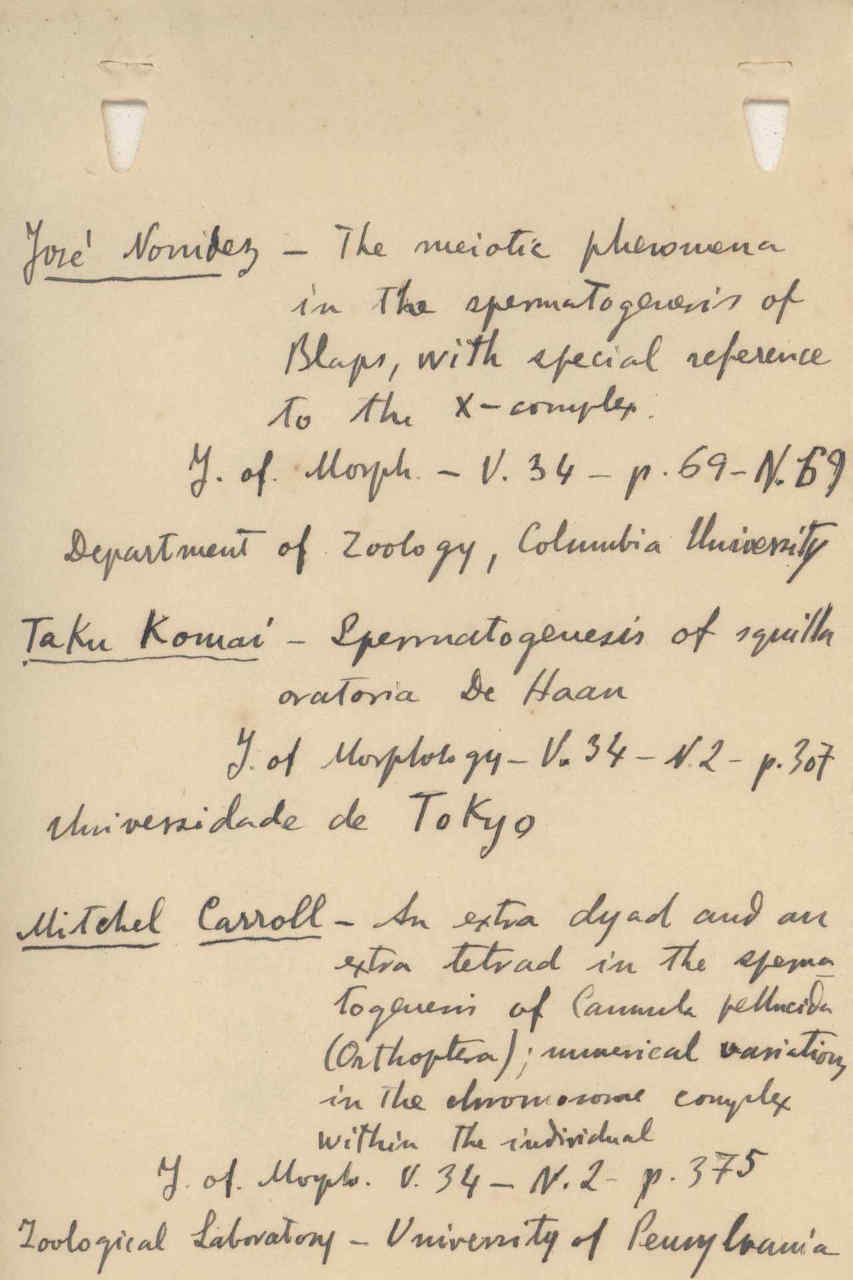 José Nonidez - The meiotic phenomena
in the spermatogenesis of
Blaps, with special reference
to the X-complex.
J. of. Morph. - V. 34 - p. 69 - N. 69
Department of Zoology, Columbia University
Taku Komai - Spermatogenesis of squilla
oratoria De Haan
J. of Morphology - V. 34 - N 2 - p. 307
Universidade de Tokyo
Mitchel Carroll - An extra dyad and an
extra tetrad in the sperma
togenesis of Camnula pellucida
(Orthoptera); numerical variations
in the chromosome complex
within the individual
J. of. Morph. V. 34 - N. 2 - p. 375
Zoological Laboratory - University of Pensylvania